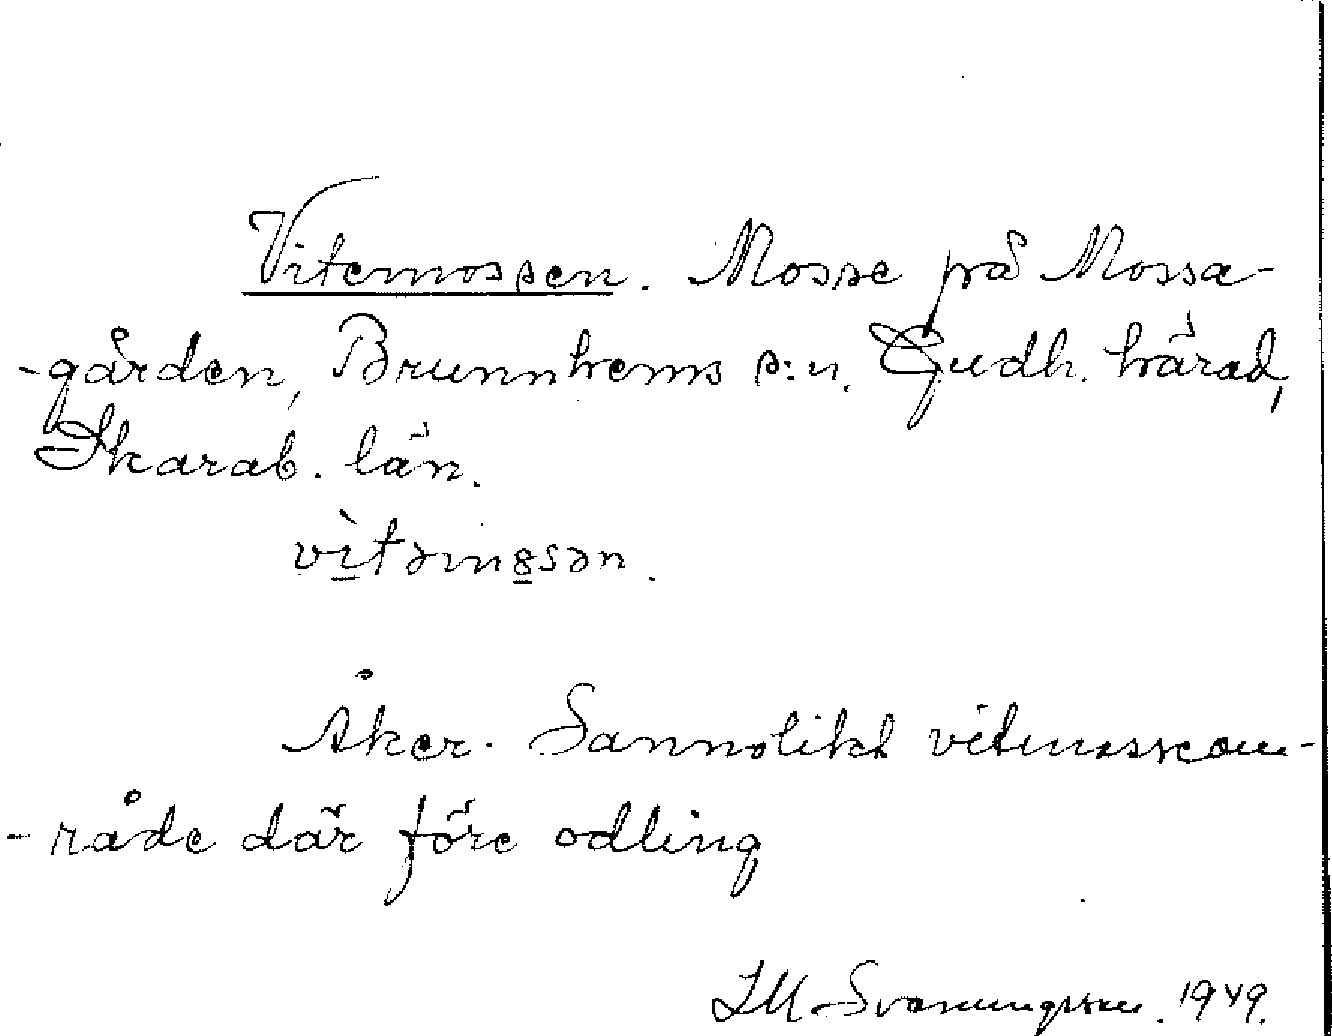 Vitemossen. Mosse på Mossa-
-gården, Brunnhems s:n. Gudh. härad,
Skarab. län.
vìtəmȣsən.
Åker. Sannolikt vitmosseom-
-råde där före odling
Svanungsson. 1949.